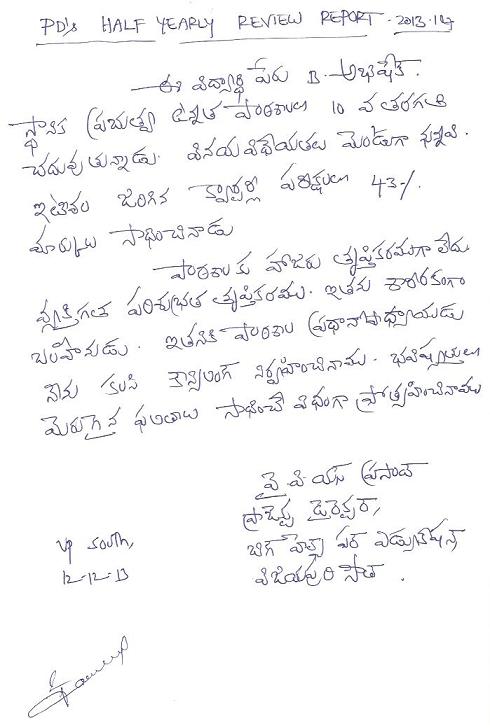 PD's HALF YEARLY REVIEW REPORT - 2013-14
ఈ విద్యార్థి పేరు B. అభిషేక్.
స్థానిక ప్రభుత్వ ఉన్నత పాఠశాలలు 10 వ తరగతి
చదువుతున్నాడు. వినయవిధేయతలు మెండుగా వున్నవి.
ఇటీవల జరిగిన క్వార్టర్లీ పరీక్షలలు 43%
మార్కులు సాధించినాడు
పాఠశాలకు హాజరు తృప్తికరముగా లేదు
వ్యక్తిగత పరిశుభ్రత తృప్తికరము. ఇతను శారీరకంగా
బలహీనుడు. ఇతనికి పాఠశాల ప్రధానోపాధ్యాయుడు
నేను కలసి కౌన్సిలింగ్ నిర్వహించినాము. భవిష్యత్తులు
మెరుగైన ఫలితాలు సాధించే విధంగా ప్రోత్సహించినాము
వై. వి. యస్ ప్రసాద్
ప్రాజెక్టు డైరెక్టర్,
బిగ్ హెల్ప్ ఫర్ ఎడ్యుకేషన్
విజయపురి సౌత్.
VP South,
12-12-13